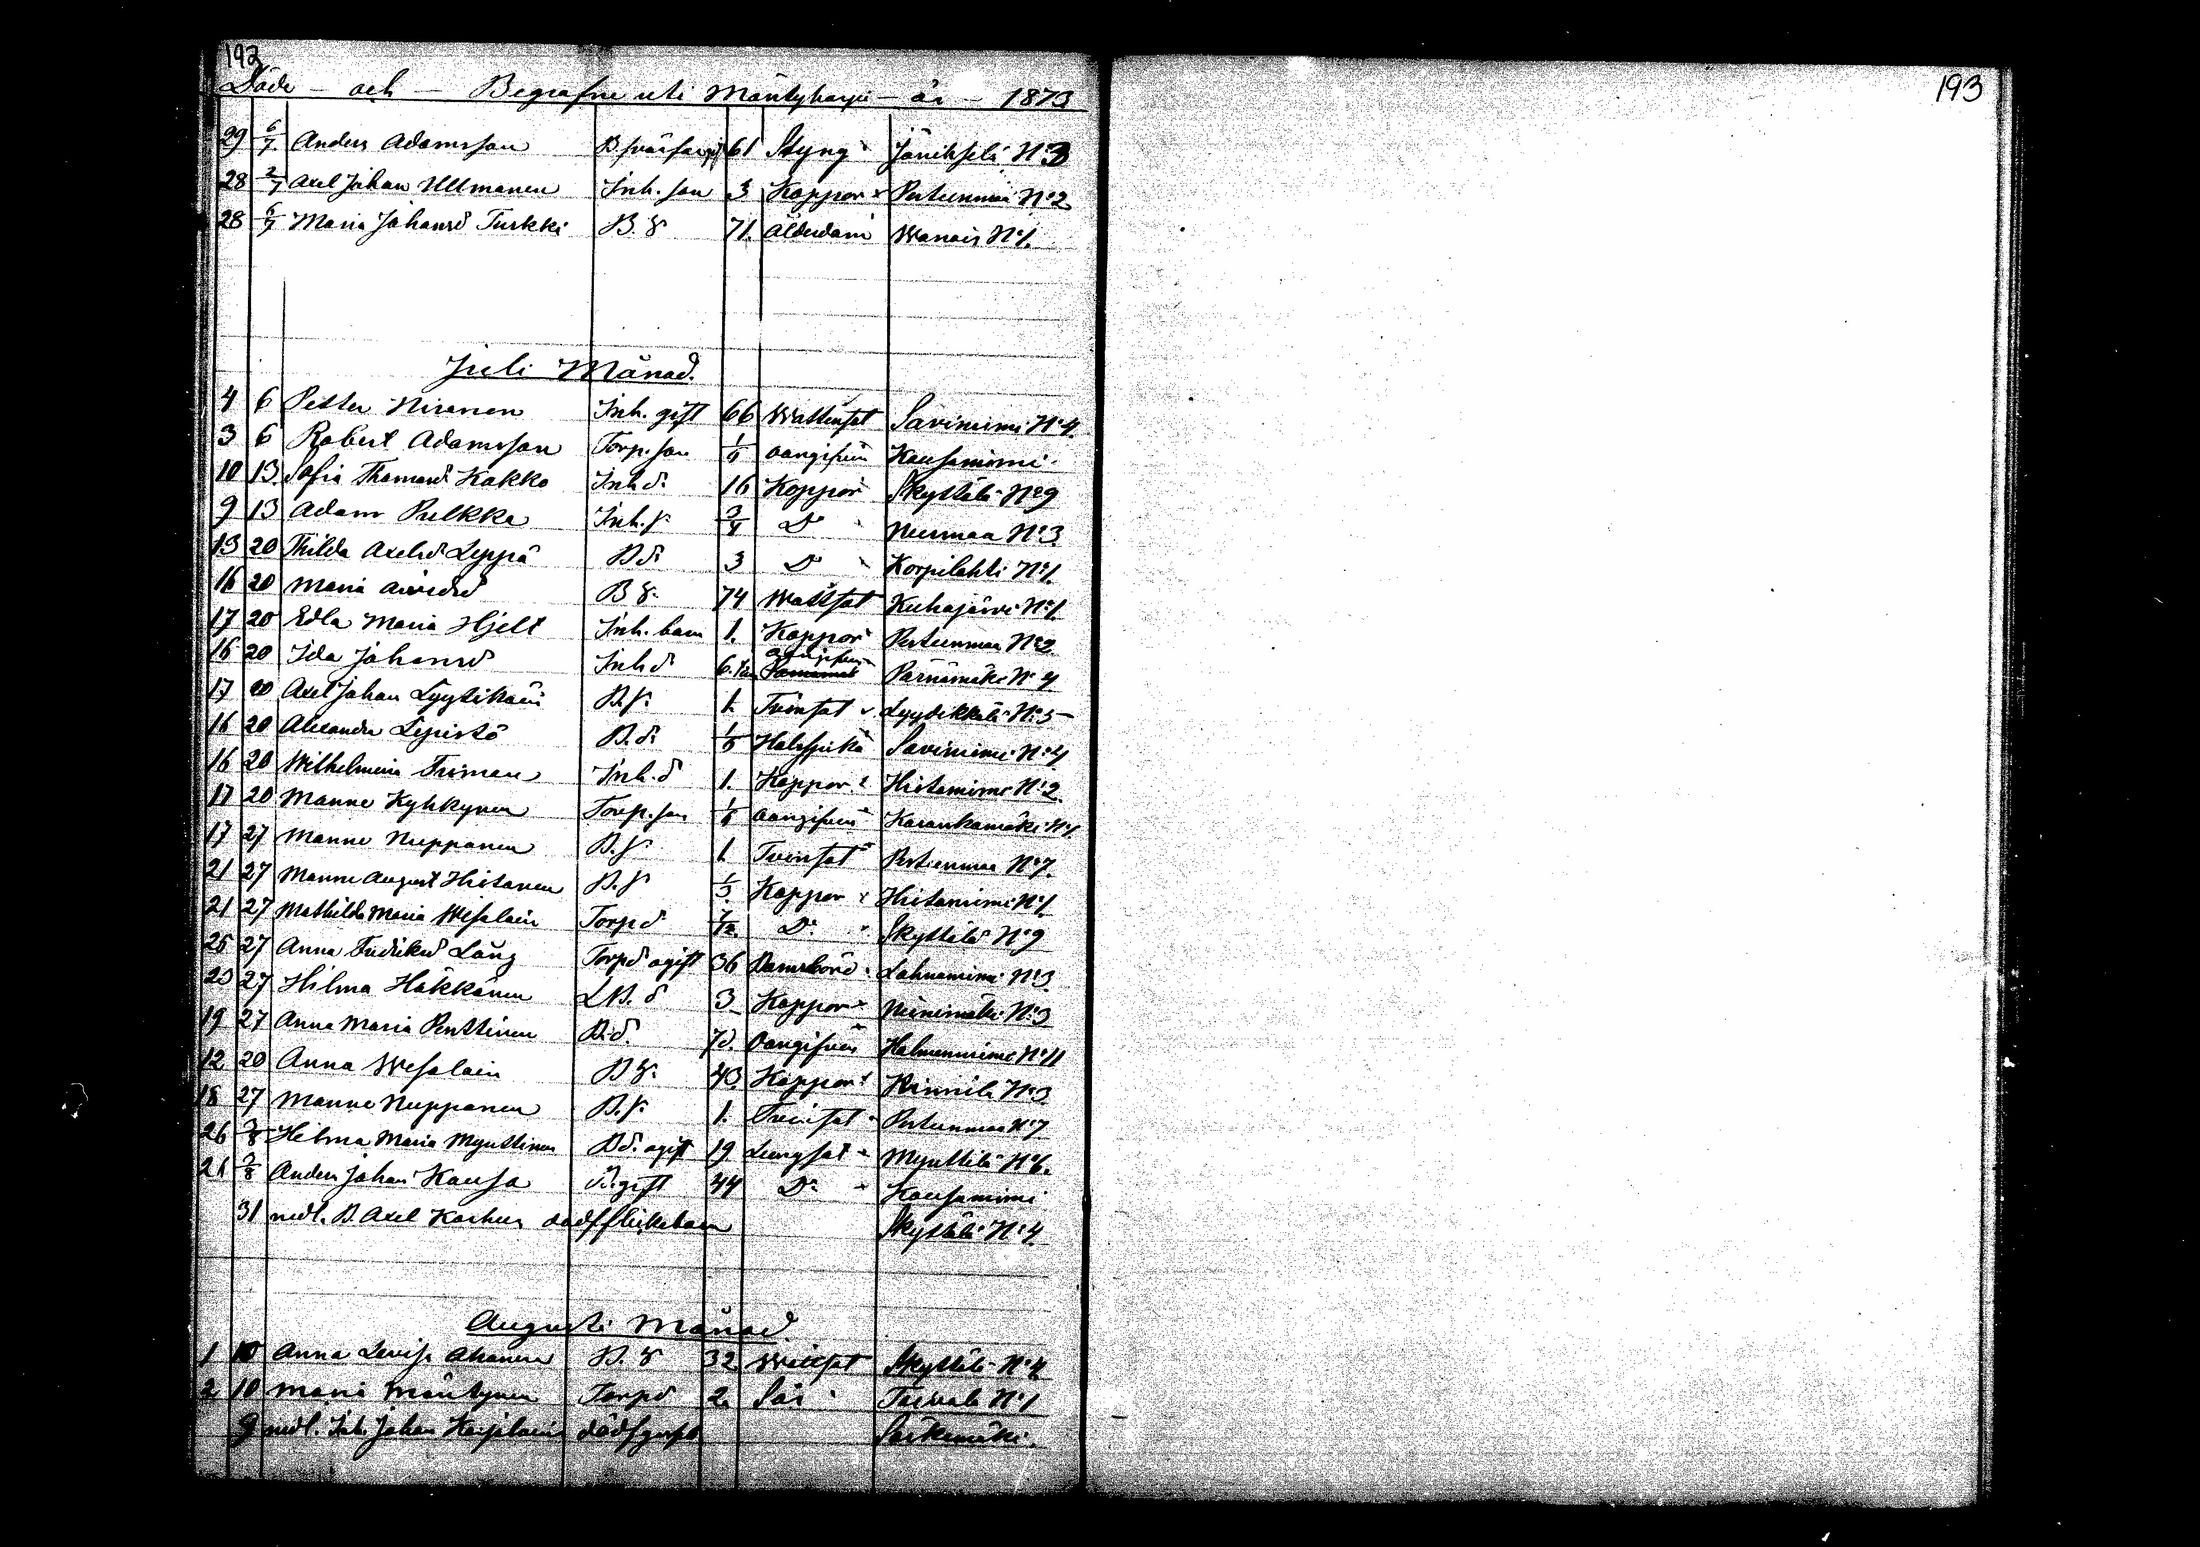 192
193
Döde - och - Begrafne uti Mäntyharju - år - 1873
29 6/7 Anders Adamsson B. svärfar gift 61 Styng Jänikselä No 3
28 2/7 Axel Johan Ullmanen Inh. son 3 Koppor Pertunmaa No 2
28 6/7 Maria Johansd Turkki B. E 71. Ålderdom Wanais No 1.
Juli Månad.
4 6 Petter Niranen Inh. gift 66 Wattusot Saviniemi No 4.
3 6 Robert Adamsson Torp. son Oangifven Kousaniemi
10 13 Sofia Thomasd Kakko Inh d. 16 Koppor Skyttälä No 9
9 13 Adam Pulkka Inh. s. 3/4 Do Nurmaa No 3
13 20 Thilda Axelsd Leppä B d. 3 Do Korpilahti No 1.
16 20 Maria B E. 74 Wattsot Kuhajärvi No 1.
17 20 Edla Maria Hjelt Inh. barn 1. Koppor Pertunmaa No 2
16 20 Ida Johansd Inh d Oangifven Pärnämäki No 4
17 20 Axel Johan Lyytikäin B. s. 1. Tvinsot Lyydikkälä No 5
16 20 Alexandra Lepistö B. d. Halsfluss Saviniemi No 4
16 20 Wilhelmina Triman Inh. d 1. Koppor Hiitaniemi No 2.
17 20 Manne Kyhkynen Torp. son Oangifven Karankamäki No 1.
17 27 Manne Nuppanen B. s. 1 Tvinsot Pertunmaa No 7.
21 27 Manne August Hiitanen B. s. Koppor Hiitaniemi No 1.
21 27 Mathilda Maria Wesalain Torp d 7/12. Do Skyttälä No 9
25 27 Anna Fredriksd Lång Torp d ogift 36 Barnsbörd Lahnaniemi No 3.
23 27 Hilma Häkkänen L B. d 3 Koppor Niinimäki No 3
19 27 Anna Maria Penttinen B. d. Oangifven Halmenniemi No 11
12 20 Anna Wesalain B E. 43 Koppor Kinnilä No 3
18 27 Manne Nuppanen B. s. 1. Tvinsot Pertunmaa No 7
26 3/8 Hilma Maria Mynttinen B d. ogift 19 Lungsot Mynttilä No 6.
21 3/8 Anders Johan Kousa B. gift 44 Do Kousaniemi
31 nedl. B. Axel Korhus dödf flickebarn Skyttälä No 4
Augusti Månad.
1 10 Anna Lovisa Ahonen B. E 32 Wattsot Skyttälä No 4
2 10 Maria Mäntynen Torp d 2. Sår Toivola No 1
9 nedl. Inh. Johan Karjalain dödf gosseb Särkemäki.